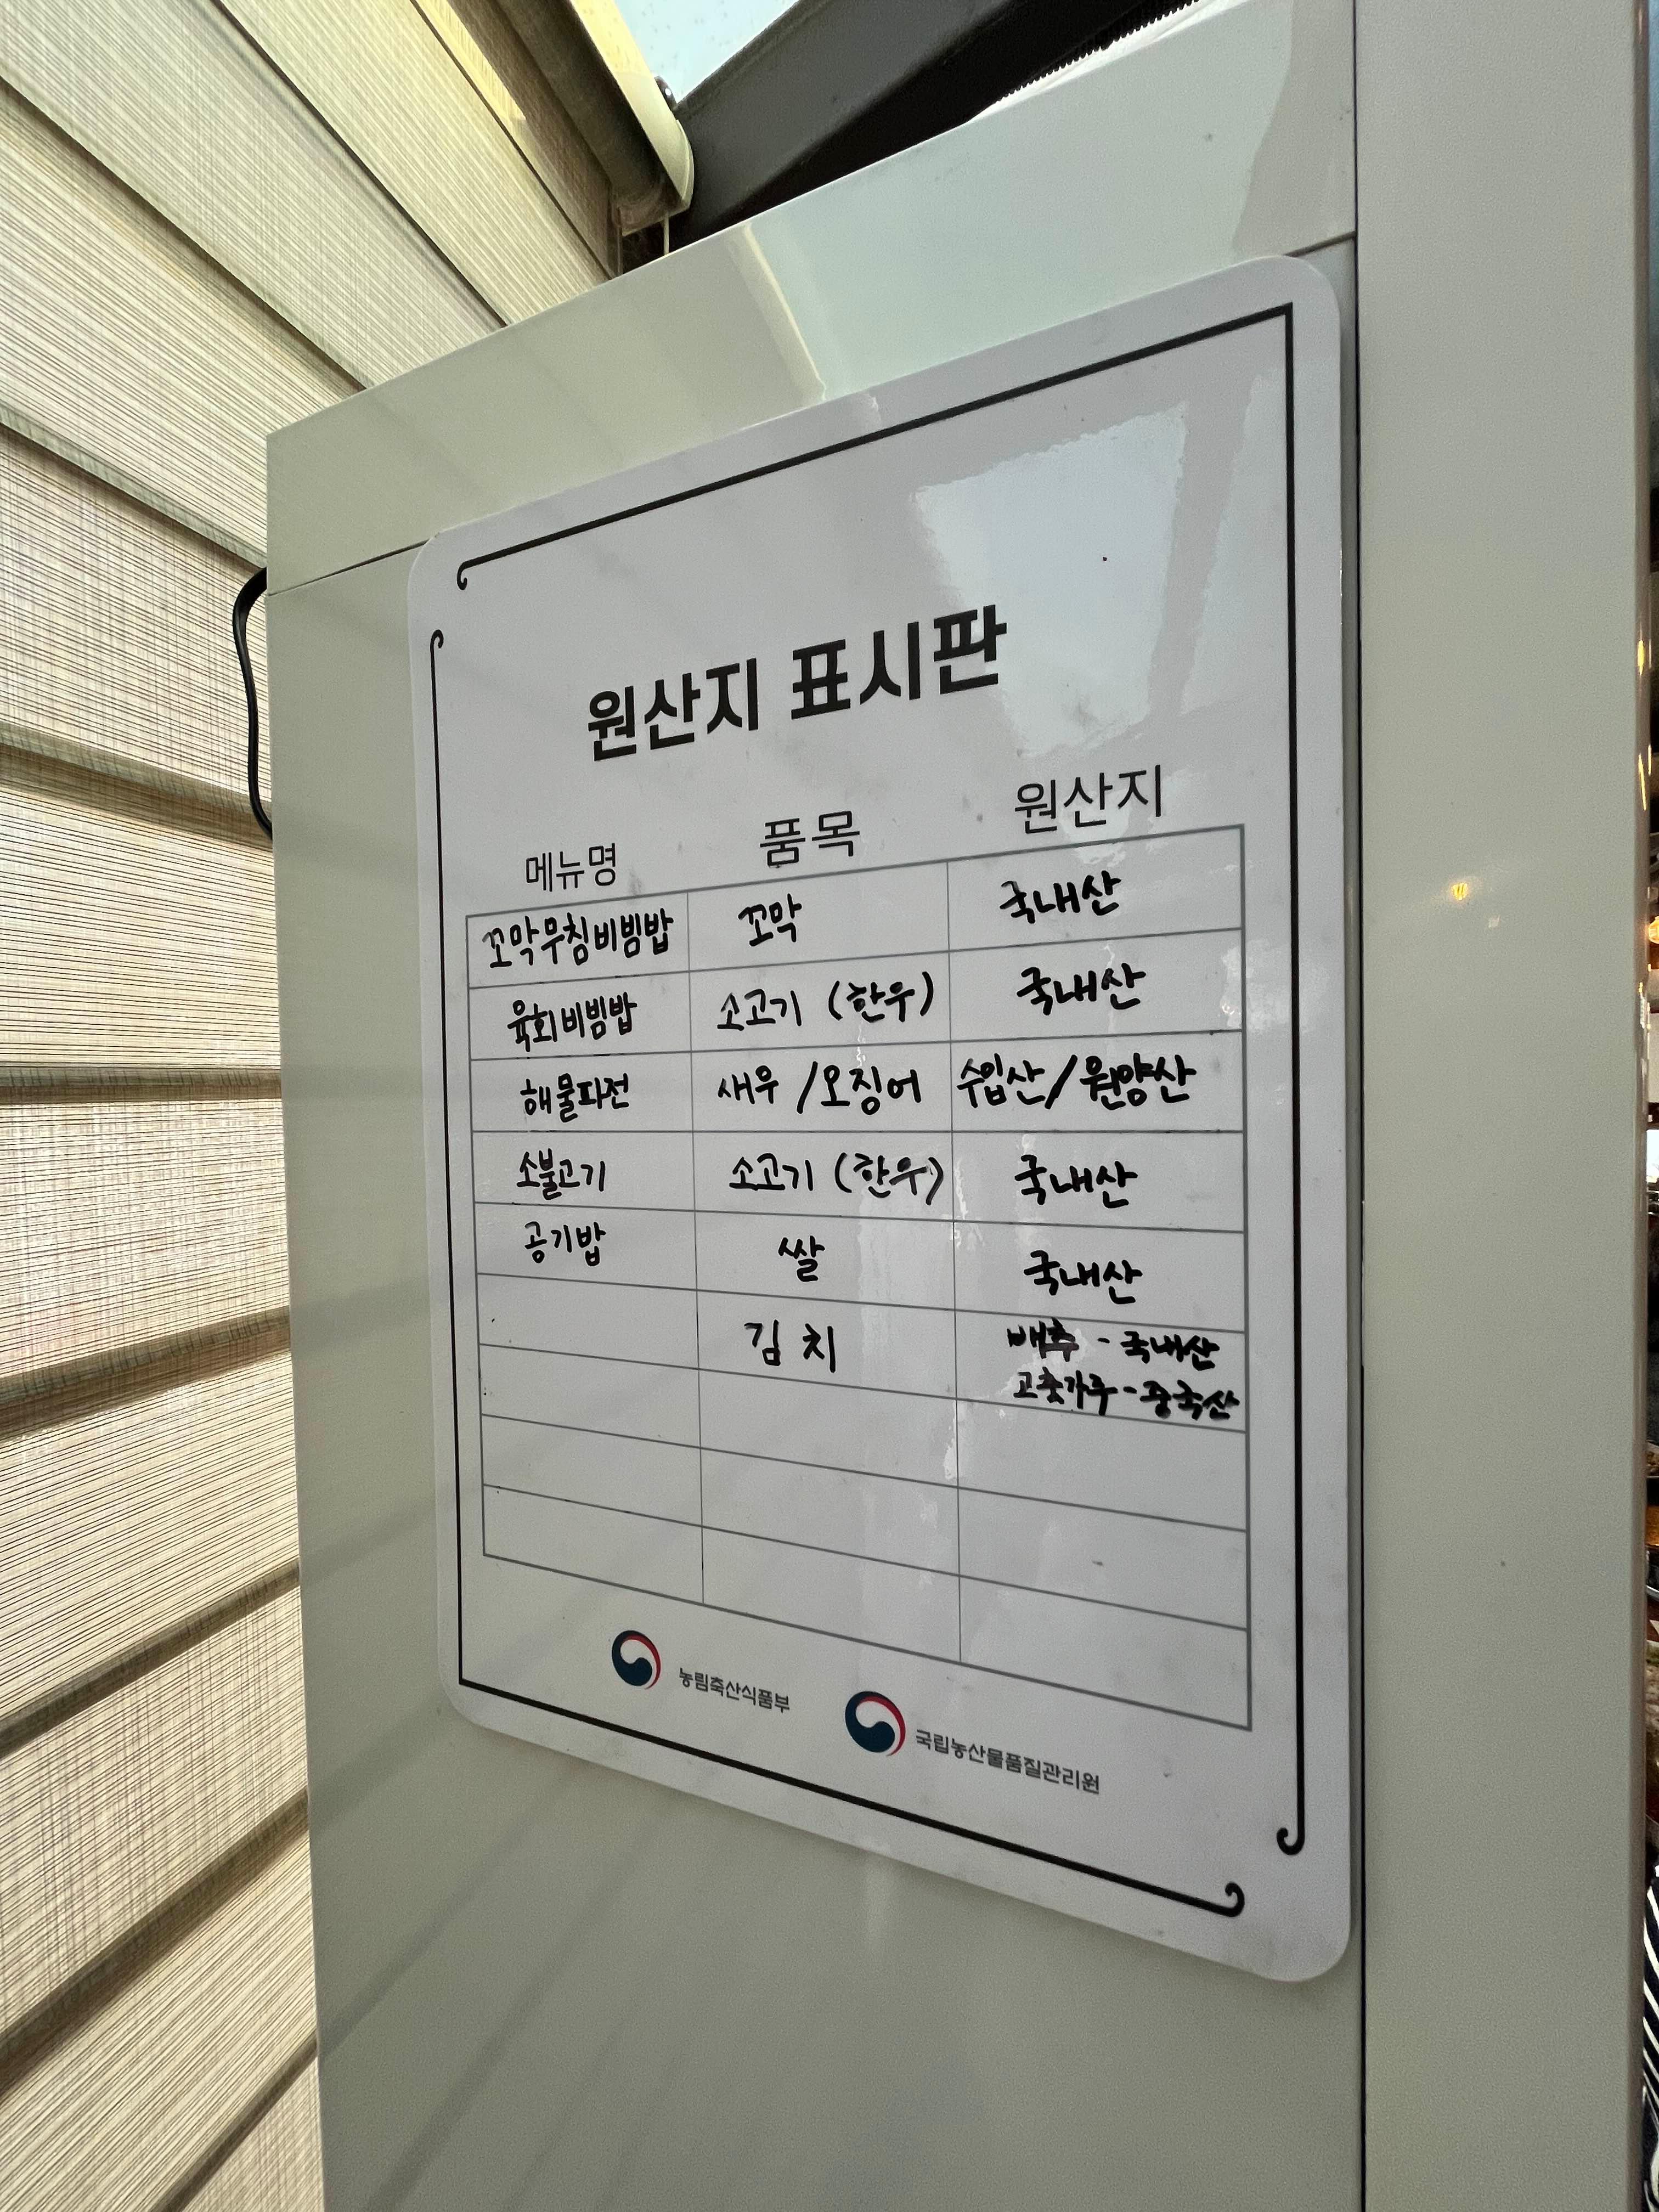 원산지 표시판
메뉴명 품목 원산지
꼬막무침비빔밥 꼬막 국내산
육회비빔밥 소고기 (한우) 국내산
해물파전 새우 / 오징어 수입산 / 원양산
소불고기 소고기 (한우) 국내산
공기밥 쌀 국내산
김치 배추 - 국내산
고춧가루 - 중국산
농림축산식품부
국립농산물품질관리원